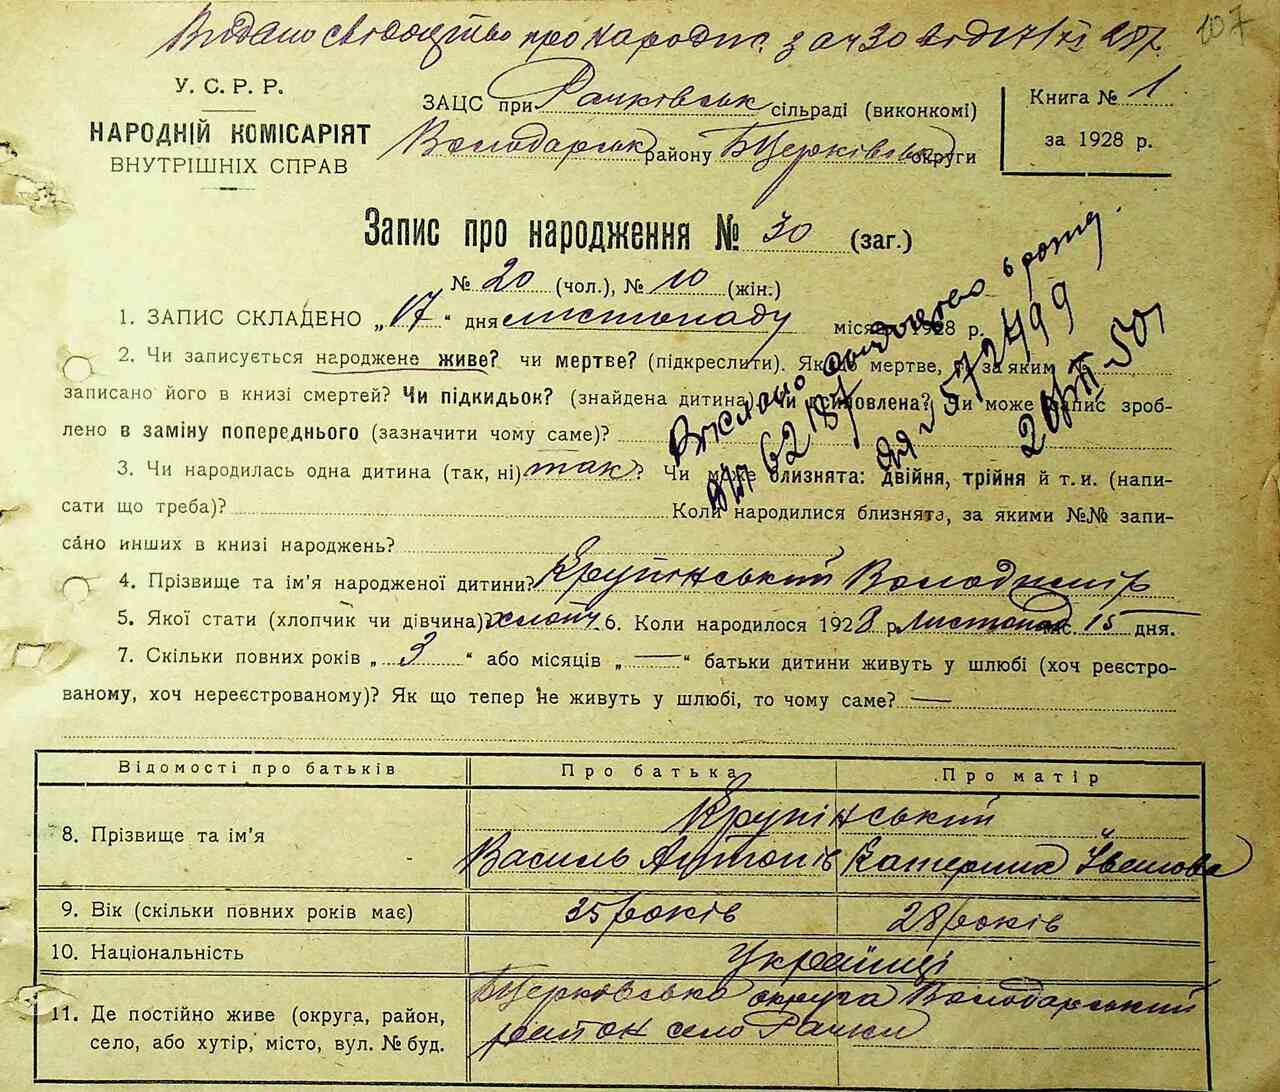 Видано свідоцтво про народж. за № 30 від 17/XI 28 р.
107
У. С. Р. Р.
НАРОДНІЙ КОМІСАРІЯТ
ВНУТРІШНІХ СПРАВ
ЗАЦС при Рачківськ сільраді (виконкомі)
Володарськ району БЦерківськ округи
Книга № 1
за 1928 р.
Запис про народження № 30 (заг.)
№ 20 (чол.), № 10 (жін.)
1. ЗАПИС СКЛАДЕНО „17“ дня листопаду місяця 1928 р.
2. Чи записується народжене живе? чи мертве? (підкреслити). Як що мертве, то за яким
записано його в книзі смертей? Чи підкидьок? (знайдена дитина) Чи встановлена? Чи може запис зроб-
лено в заміну попереднього (зазначити чому саме)?
Вислано свидоцтво
572499
3. Чи народилась одна дитина (так, ні) так? Чи може близнята: двійня, трійня й т. и. (напи-
сати що треба)? Коли народилися близнята, за якими №№ запи-
сано инших в книзі народжень?
4. Прізвище та ім'я народженої дитини? Крупінський Володимір
5. Якої стати (хлопчик чи дівчина)? хлопч. 6. Коли народилося 1928 р. Листопад міс. 15 дня.
7. Скільки повних років „3“ або місяців „—“ батьки дитини живуть у шлюбі (хоч реєстро-
ваному, хоч нереєстрованому)? Як що тепер не живуть у шлюбі, то чому саме? —
Відомості про батьків Про батька Про матір
8. Прізвище та ім'я Крупінський
Василь Антонів Катерина Іванова
9. Вік (скільки повних років має) 35 років 28 років
10. Національність Українці
11. Де постійно живе (округа, район,
село, або хутір, місто, вул. № буд.
БЦерковська округа Володарський
район село Рачки